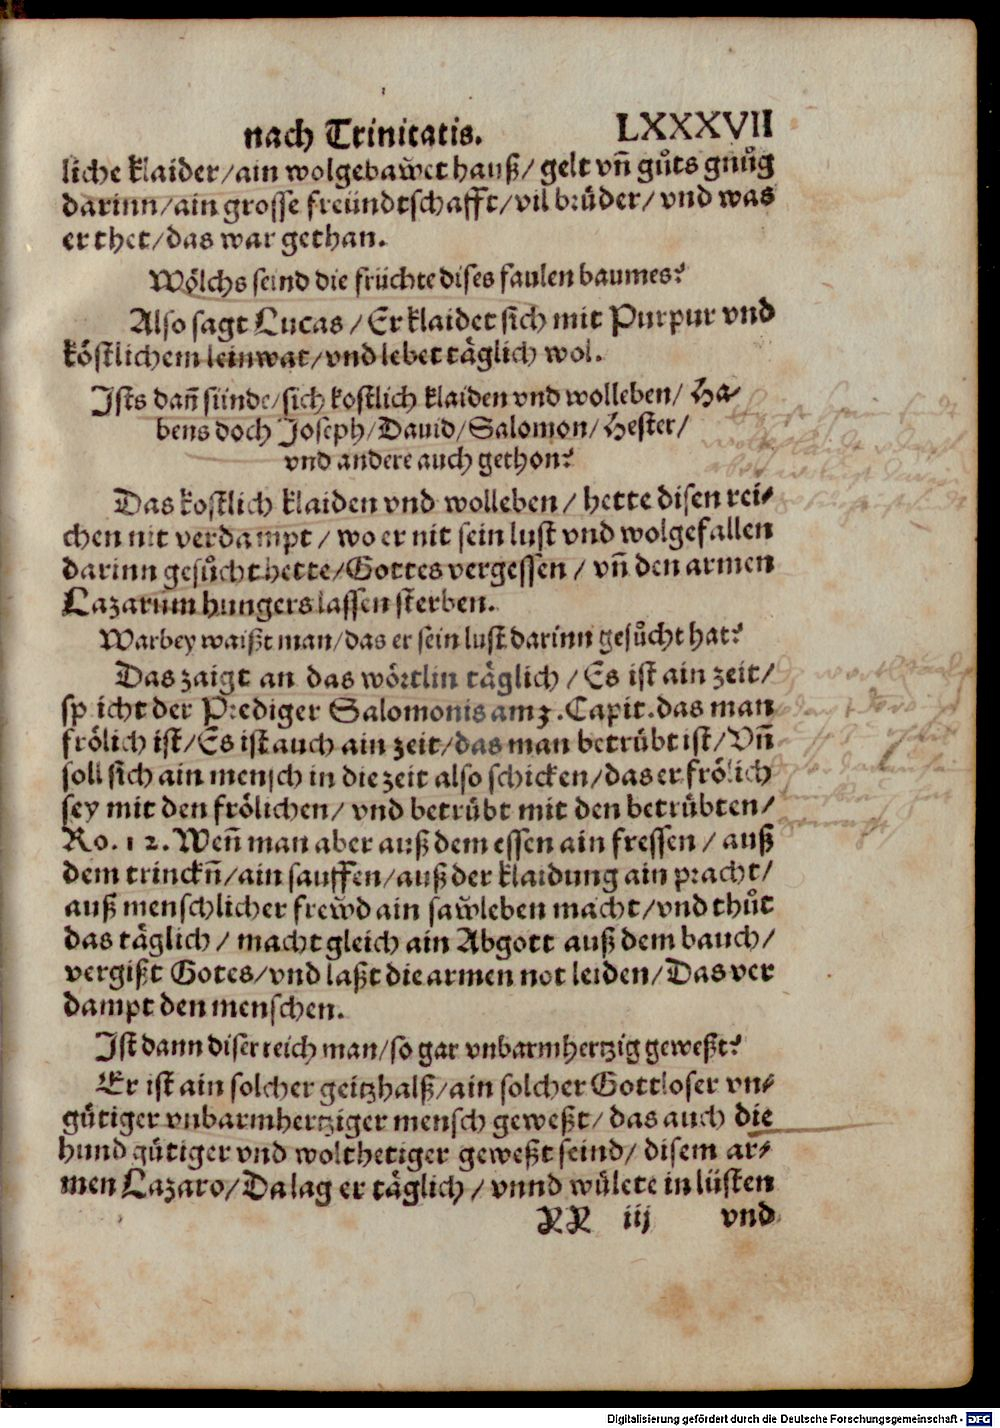 nach Trinitatis. LXXXVII
liche klaider/ain wolgebaẘet hauß/gelt vñ gůts gnůg
darinn/ain grosse freündtschafft/vil brüder/vnd was
er thet/das war gethan.
Wölchs seind die früchte dises faulen baumes?
Also sagt Lucas/Er klaidet sich mit Purpur vnd
köstlichem leinwat/vnd lebet täglich wol.
Ists dañ sünde/sich kostlich klaiden vnd wolleben/Ha-
bens doch Joseph/Dauid/Salomon/Hester/
vnd andere auch gethon?
Das kostlich klaiden vnd wolleben/hette disen rei-
chen nit verdampt/wo er nit sein lust vnd wolgefallen
darinn gesůcht hette/Gottes vergessen/vñ den armen
Lazarum hungers lassen sterben.
Warbey waißt man/das er sein lust darinn gesůcht hat?
Das zaigt an das wörtlin täglich/Es ist ain zeit/
sp icht der Prediger Salomonis am 3. Capit. das man
frölich ist/Es ist auch ain zeit/das man betrübt ist/Vñ
soll sich ain mensch in die zeit also schicken/das er frölich
sey mit den frölichen/vnd betrübt mit den betrübten/
Ro. 12. Weñ man aber auß dem essen ain fressen/auß
dem trinckñ/ain sauffen/auß der klaidung ain pracht/
auß menschlicher freẘd ain saẘleben macht/vnd thůt
das täglich/macht gleich ain Abgott auß dem bauch/
vergißt Gotes/vnd laßt die armen not leiden/Das ver
dampt den menschen.
Ist dann diser reich man/so gar vnbarmhertzig geweßt?
Er ist ain solcher geitzhalß/ain solcher Gottloser vn-
gütiger vnbarmhertziger mensch geweßt/das auch die
hund gütiger vnd wolthetiger geweßt seind/disem ar-
men Lazaro/Da lag er täglich/vnnd wülete in lüsten
RR iij vnd
Digitalisierung gefördert durch die Deutsche Forschungsgemeinschaft - DFG